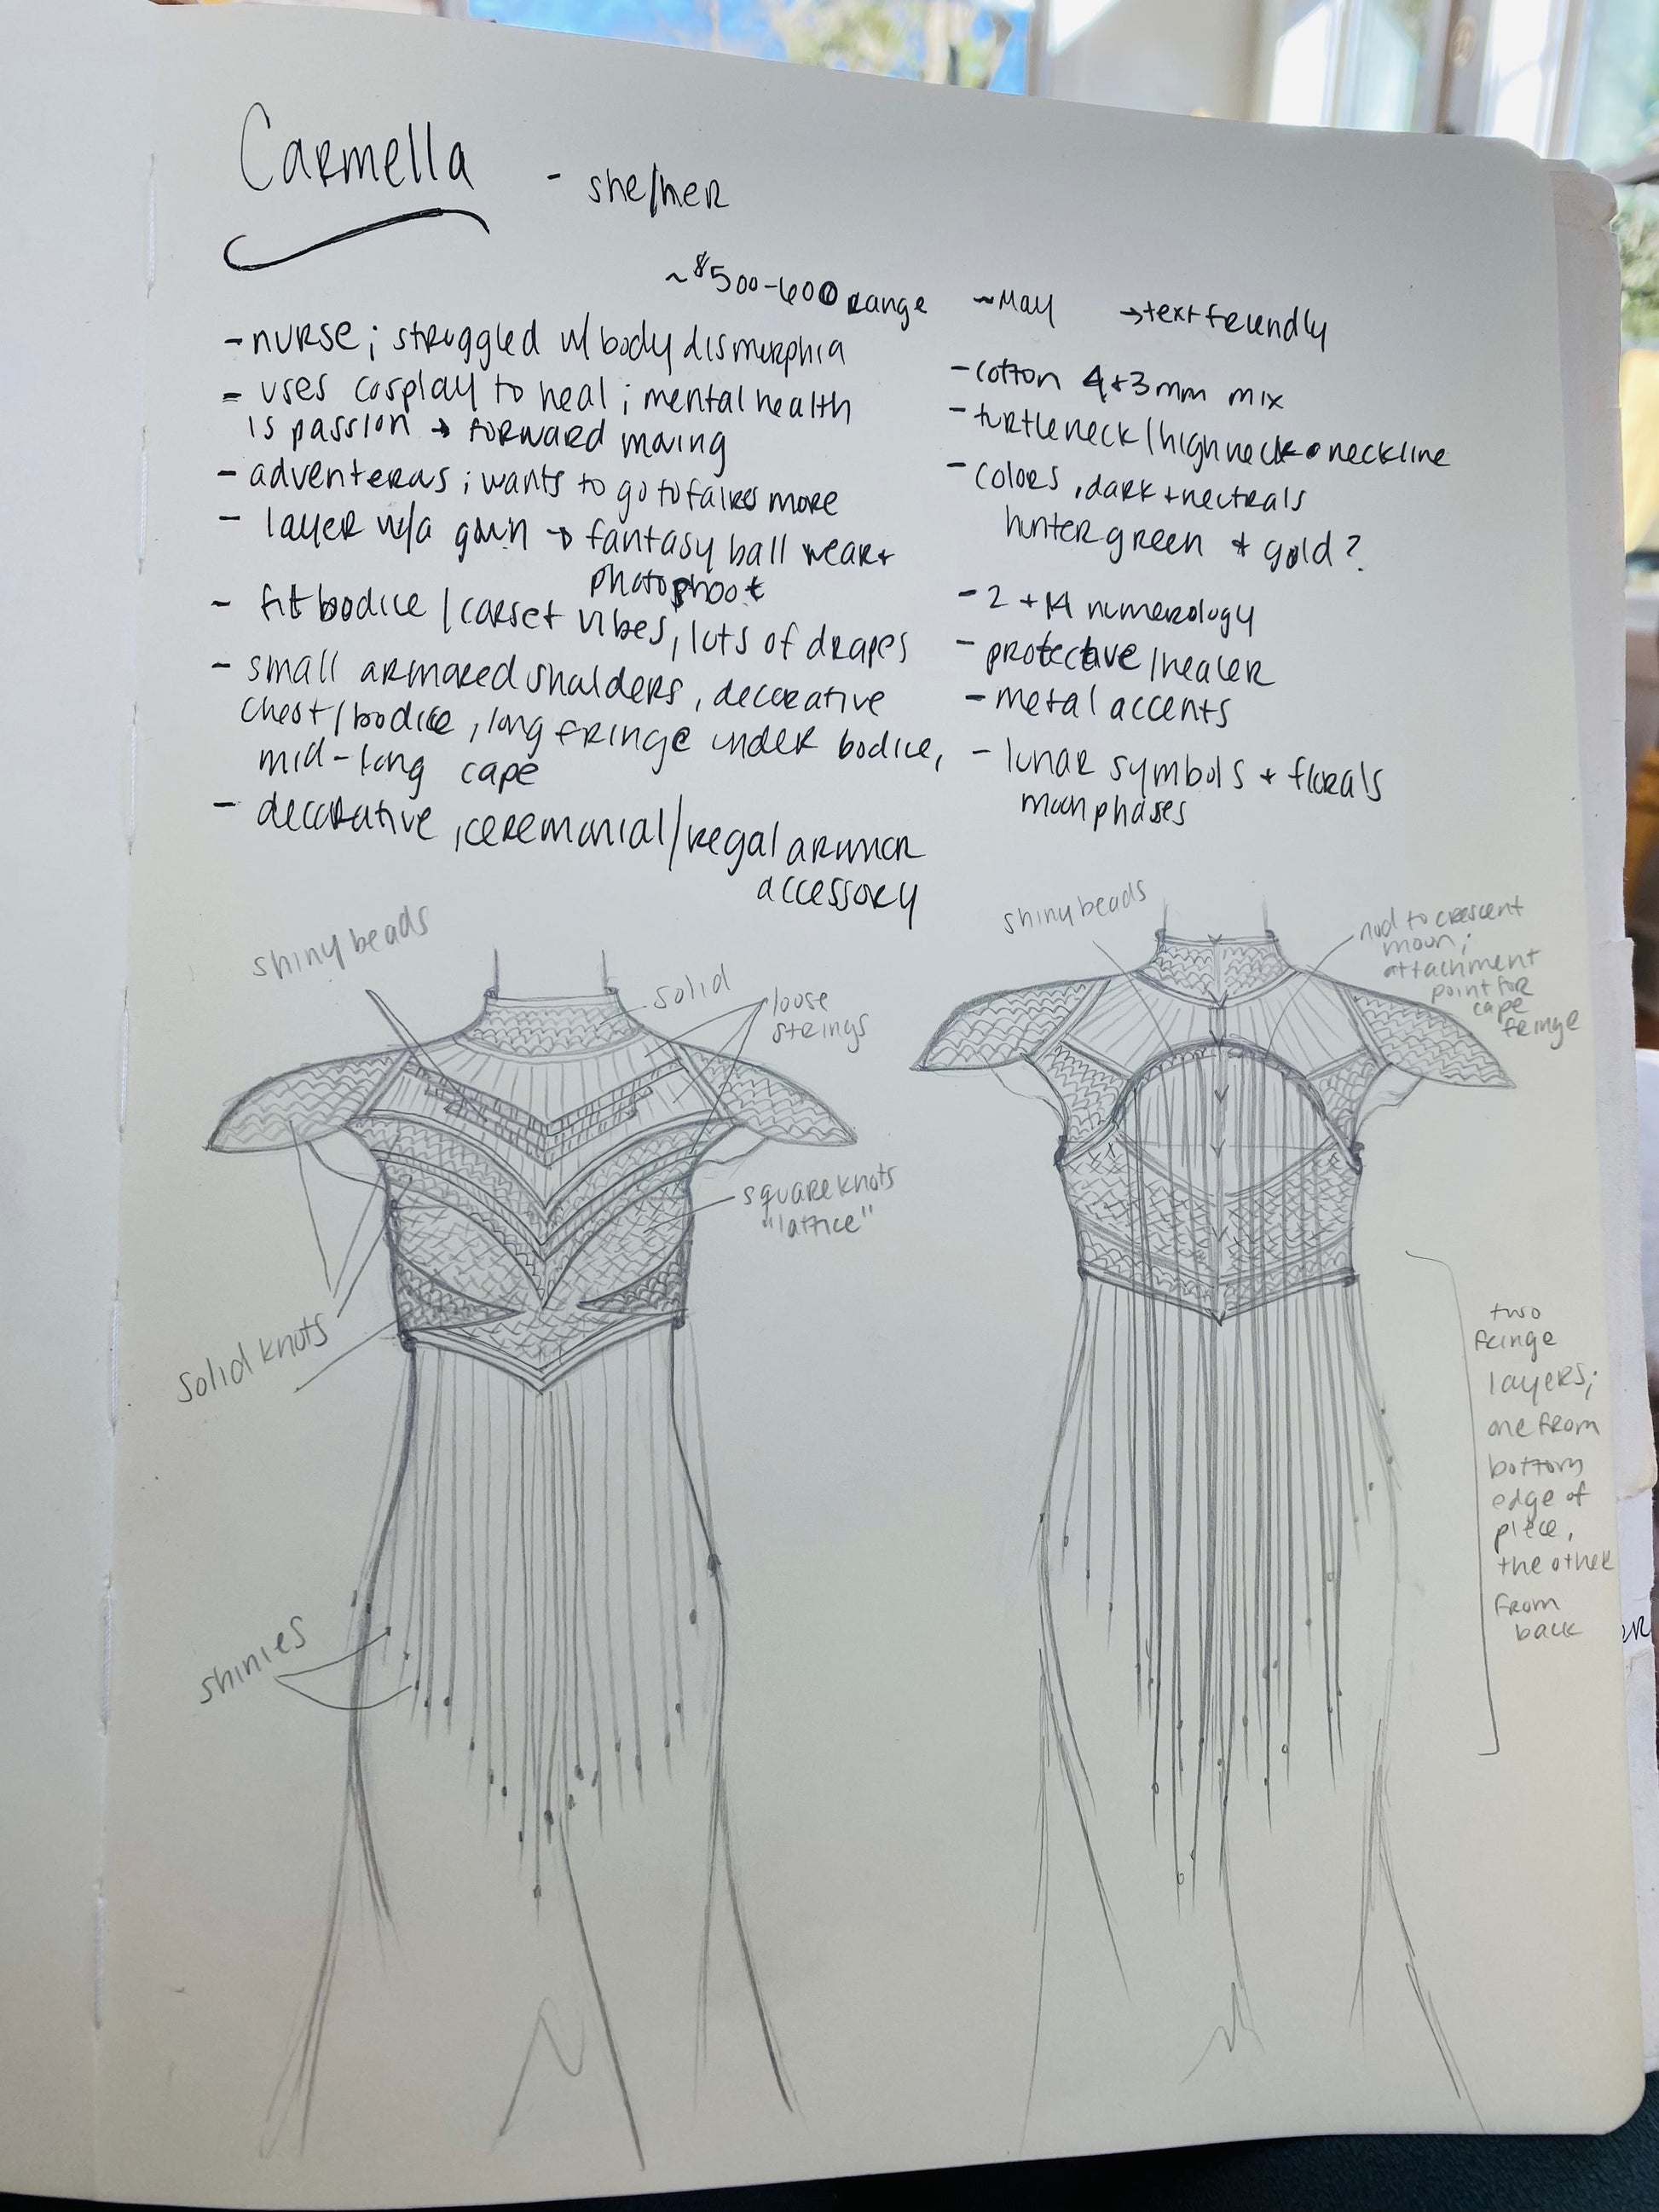 Carmella - she/her
~$500-600 range ~May →text friendly
- nurse; struggled w/ body dismorphia
- uses cosplay to heal; mental health
is passion → forward moving
- adventerous; wants to go to faires more
- layer w/a gown → fantasy ball wear +
photoshoot
- fit bodice / corset vibes, lots of drapes
- small armored shoulders, decorative
chest/bodice, long fringe under bodice,
mid-long cape
- decorative, ceremonial/regal armor
accessory
- cotton 4+3mm mix
- turtleneck/high neck neckline
- colors, dark + neutrals
hunter green + gold?
- 2 + 14 numerology
- protective/healer
- metal accents
- lunar symbols + florals
moon phases
shiny beads
solid
loose
strings
square knots
"lattice"
solid knots
shinies
shiny beads
nod to crescent
moon;
attachment
point for
cape
fringe
two
fringe
layers;
one from
bottom
edge of
piece,
the other
from
back